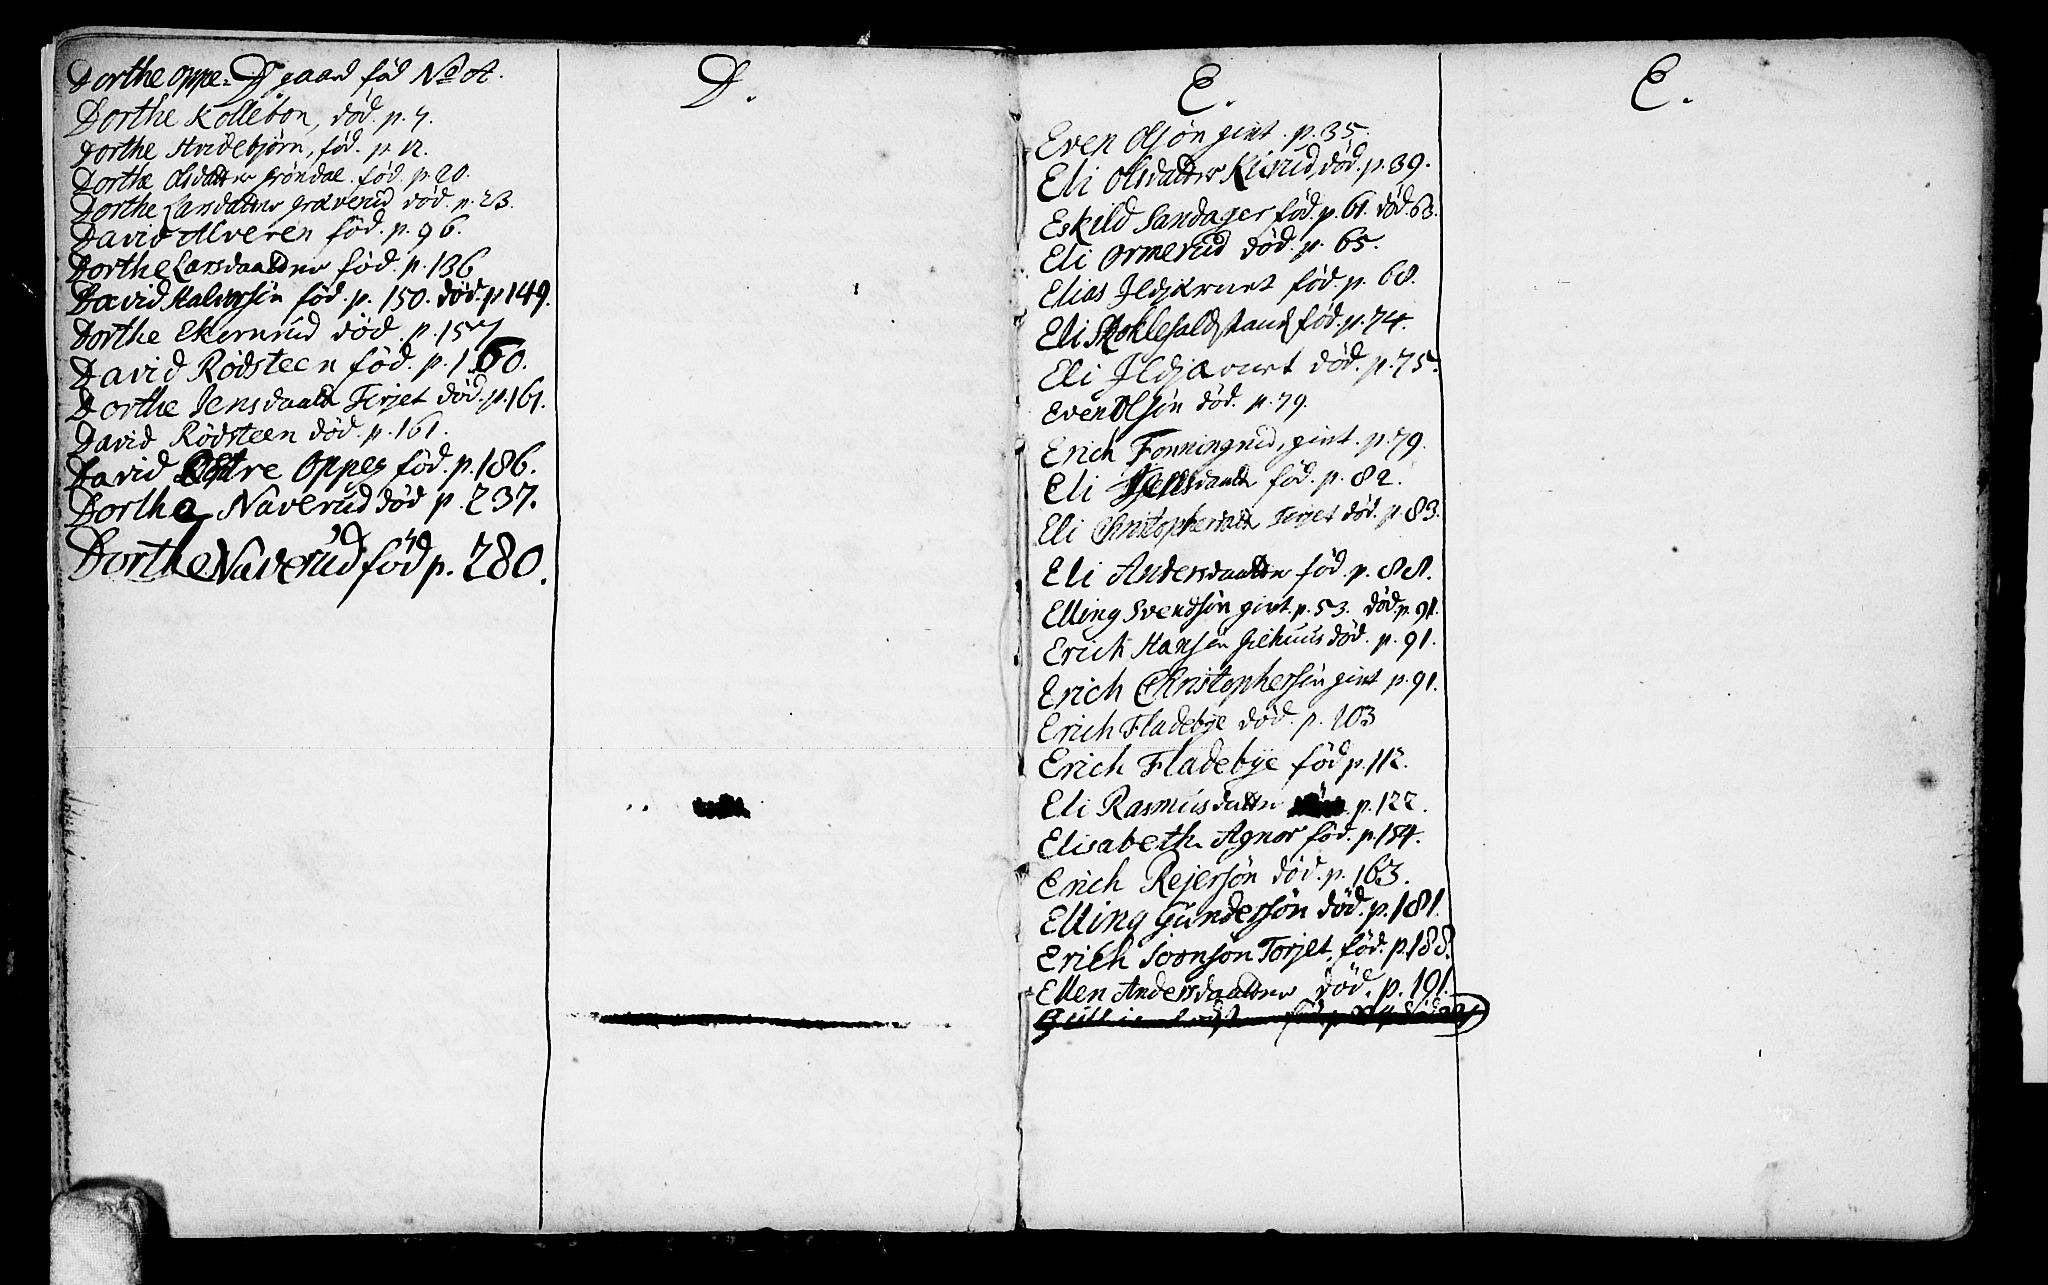 D.
Dorthe Oppegaard fød No A.
Dorthe Kollebon, død. p. 7.
Dorthe Hvidebjørn, fød. p. 12.
Dorthe Olsdatter Grøndal. fød. p. 20.
Dorthe Larsdatter Græverud død. p. 23.
David Alveren fød. p. 96.
Dorthe Larsdaatter fød. p. 136
David Halvorsøn fød. p. 150. død. p 149.
Dorthe Ekernrud død. p. 157
David Rødsteen fød. p. 160.
Dorthe Jensdaatt Terjet død. p. 161.
David Rødsteen død. p. 161.
David Østre Oppeg fød. p. 186.
Dorthe Naverud død p. 237.
Dorthe Naverud fød p. 280.
D.
E.
Even Olsøn givt. p. 35.
Eli Olsdatter Kisrud, død. p. 39.
Eskild Sandager fød. p. 61. død 63.
Eli Ormerud død. p. 65.
Elias Ildjernet fød. p. 68.
Eli fød. p. 74.
Eli Ildjernet død. p. 75.
Even Olsøn død. p. 79.
Erich Fonningrud, givt. p. 79.
Eli Jensdaatt fød. p. 82.
Eli Christophersdatt Terjet død. p 83.
Eli Andersdaatter fød. p. 88.
Elling Svendsøn givt. p. 53. død. p. 91.
Erich Hansen død. p. 91.
Erich Christophersøn givt p. 91.
Erich Fladebye død. p. 103
Erich Fladebye fød p. 112.
Eli Rasmusdatter p. 122.
Elisabeth Agnor fød. p. 154.
Erich Rejersøn død. p. 163.
Elling Gundersøn død. p. 181.
Erich Torjet. fød. p. 188.
Ellen Andersdaatter død. p. 191.
E.